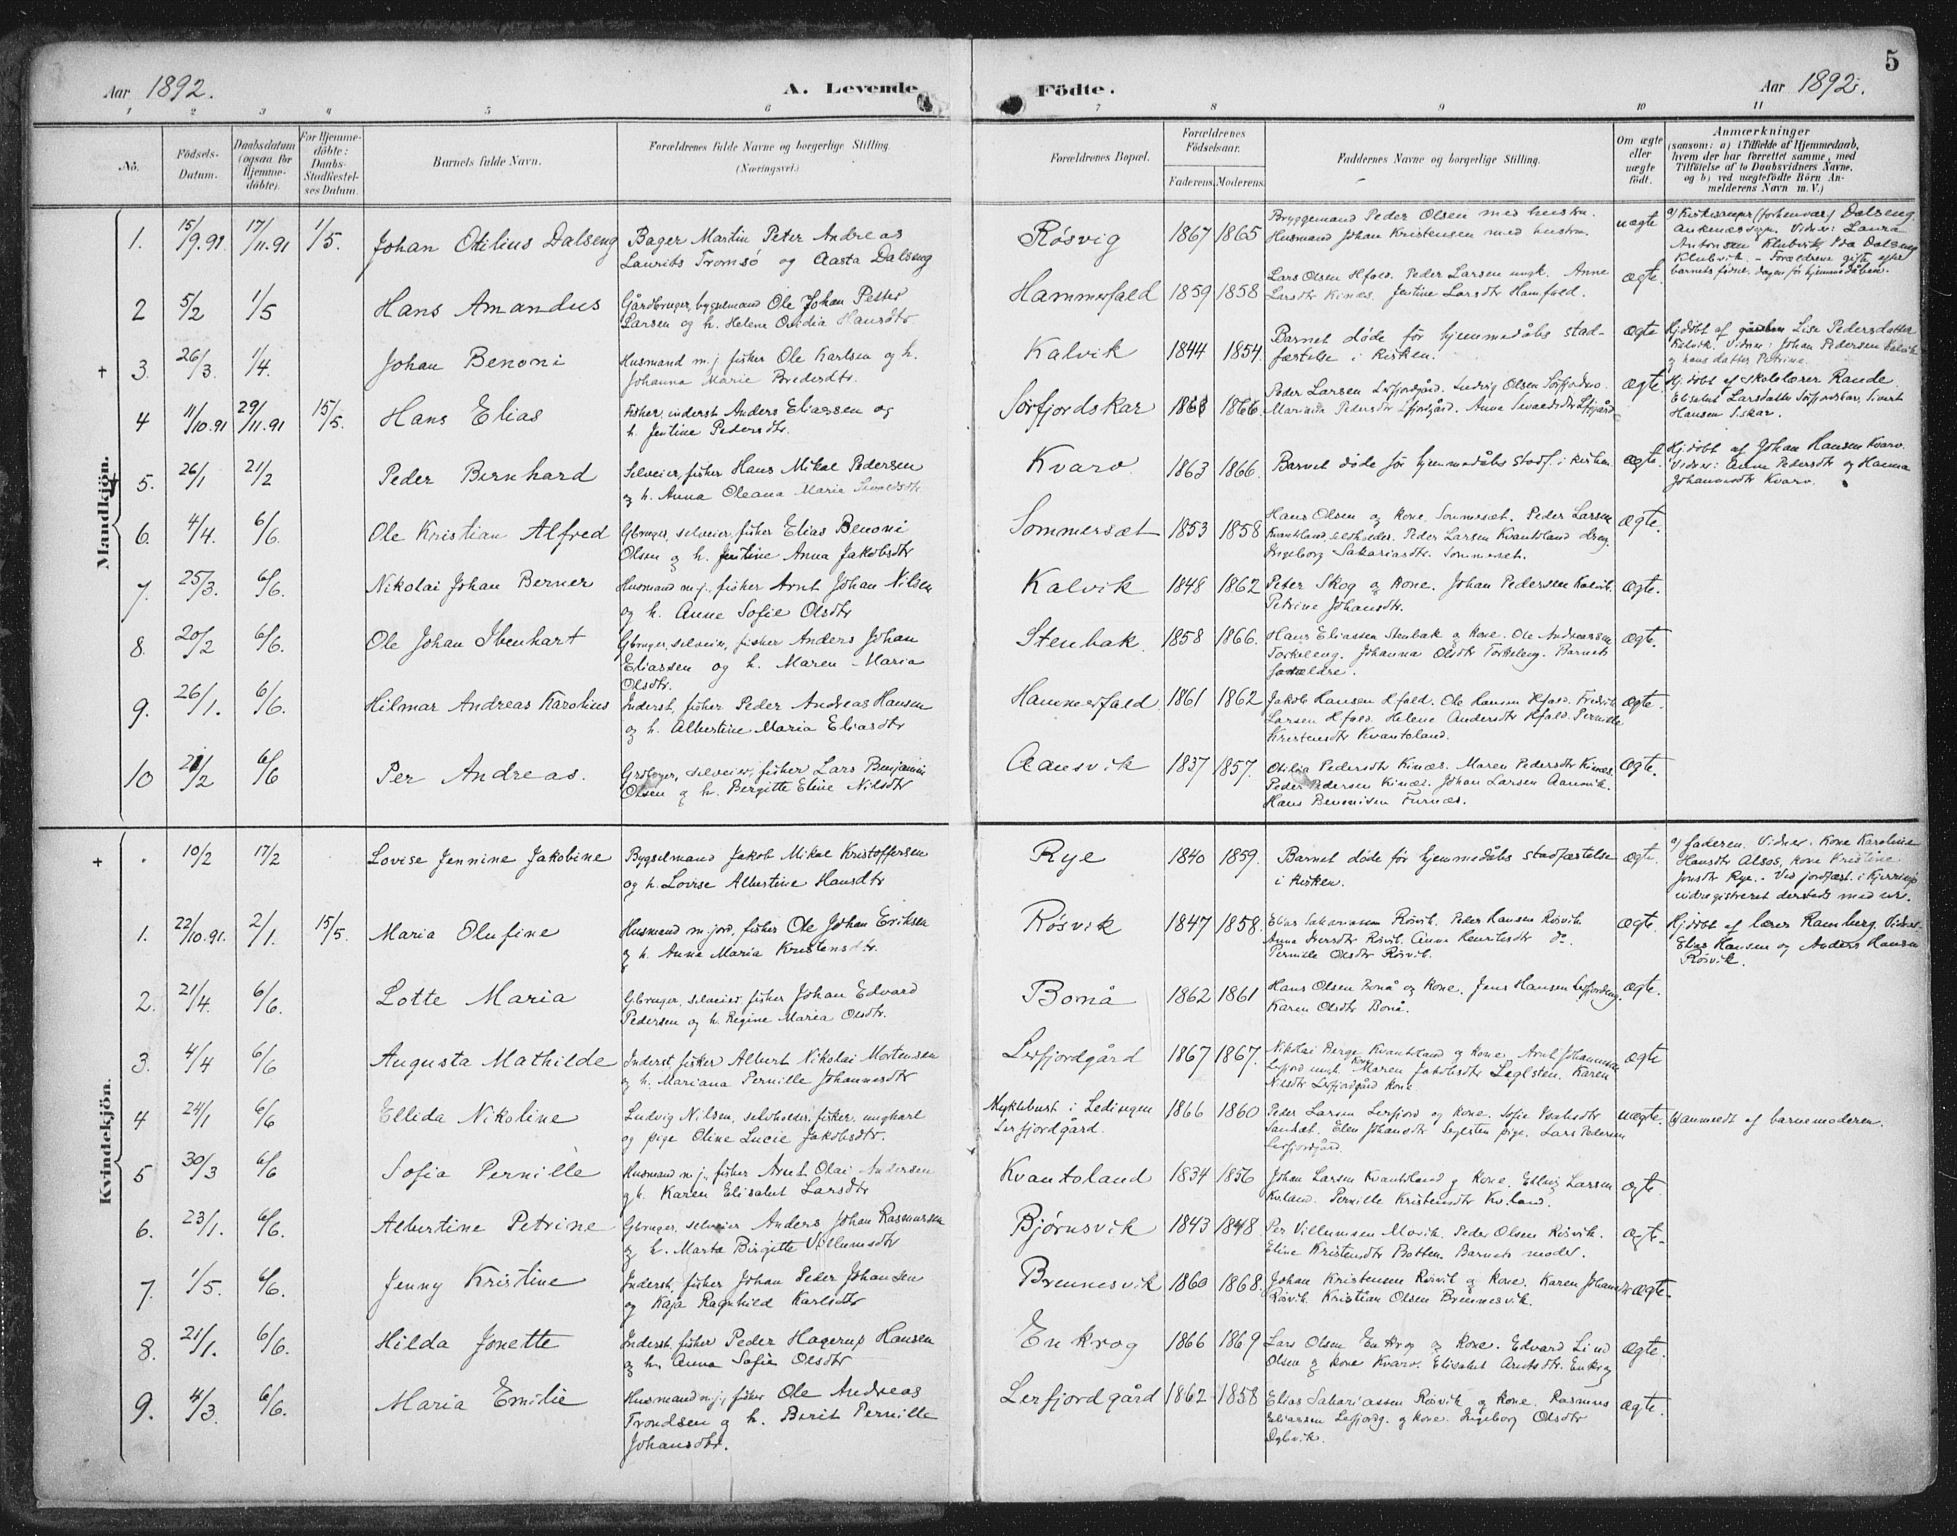 5
Aar 1892.
A. Levende
Födte.
Aar 1892.
1 2 3 4 5 6 7 8 9 10 11
No.
Födsels-Datum.
Daabsdatum (ogsaa for Hjemme-döbte).
For Hjemme-döbte: Daabs-Stadfæstel-ses Datum.
Barnets fulde Navn.
Forældrenes fulde Navne og borgerlige Stilling.
(Næringsvei.)
Forældrenes Bopæl.
Forældrenes Födselsaar.
Faderens. Moderens.
Faddernes Navne og borgerlige Stilling.
Om ægte eller uægte födt.
Anmærkninger
(saasom: a) i Tilfælde af Hjemmedaab,
hvem der har forrettet samme, med
Tilföielse af to Daabsvidners Navne.
og b) ved uægtefödte Börn An-
melderens Navn m. V.)
Mandkjön.
1. 15/9.91 17/11.91 1/5. Johan Odilius Dalseng
Bager Martin Peter Andreas
Laurits Tromsø og Aasta Dalseng
Røsvig 1867 1865
Bryggemand Peder Olsen med hustru.
Husmand Johan Kristensen med hustru.
uægte
a) Kirkesanger (forhenvær) Dalseng
Ankenæs sogn. Vidner: Laura
Antonsen Klubvik, Ida Dalseng
Klubvik. – Forældrene gift efter
barnets fødsel, dagen før hjemmedåben.
2 5/2 1/5 Hans Amandus
Gårdbruger, bygselmand Ole Johan Petter
Larsen og h. Helene Ovidia Hansdtr
Hammerfald 1859 1858
Lars Olsen Hfald. Peder Larsen ungk. Anne
Larsdtr Kinæs. Jentine Larsdtr Hamfald.
ægte.
+ 3. 26/3. 1/4. Johan Benoni
Husmand m. j. fisker Ole Karlsen og h.
Johanna Marie Pedersdtr.
Kalvik 1844 1854.
Barnet døde før hjemmedåbs stad-
fæstelse i kirken.
ægte
Hj. døbt af Lise Pedersdatter
Kalvik. Vidner: Johan Pedersen Kalvik
og hans datter Petrine.
4 11/10.91 29/11.91 15/5. Hans Elias
Fisker, inderst Anders Eliassen og
h. Jentine Pedersdtr.
Sørfjordskar 1863 1866.
Peder Larsen Lerfjordgård. Ludvig Olsen Sørfjordmo.
Mariana Pedersdtr Lfjordgård. Anna Sivaldsdtr Lfjgård
ægte.
Hj. døbt af skolelærer Rande.
Elisabet Larsdatter Sørfjordskar, Sivert
Hansen S.skar.
+ 5. 26/1 21/2 Peder Bernhard
Selveier, fisker Hans Mikal Pedersen
og h. Anna Oleana Marie Sivaldsdtr
Kvarv. 1863 1866.
Barnet døde før hjemmedåbs stadf. i kirken.
ægte.
Hj. døbt af Johan Hansen Kvarv.
Vidner: Anne Pedersdtr og Hanna
Johannesdtr Kvarv.
6. 4/4. 6/6. Ole Kristian Alfred
Gbruger, selveier, fisker Elias Benoni
Olsen og h. Jentine Anna Jakobsdtr
Sommersæt 1853 1858
Hans Olsen og kone, Sommersæt. Peder Larsen
Kvantoland, selvholder. Peder Larsen Kvantoland dreng.
Ingeborg Sakariasdtr. Sommerset.
ægte.
7. 25/3. 6/6. Nikolai Johan Berner
Husmand m. j., fisker Arnt Johan Nilsen
og h. Anne Sofie Olsdtr
Kalvik 1848 1862
Peter Skog og kone. Johan Pedersen Kalvik.
Petrine Johansdtr.
ægte.
8. 20/2 6/6. Ole Johan Ibenhart
Gbruger, selveier, fisker Anders Johan
Eliassen og h. Maren Maria
Olsdtr.
Stenbak. 1858 1866.
Hans Eliassen Stenbak og kone. Ole Andreassen
Torkeleng. Johanna Olsdtr Torkeleng. Barnets
forældre.
ægte.
9. 26/1. 6/6. Hilmar Andreas Karolius
Inderst, fisker Peder Andreas Hansen
og h. Albertine Maria Eliasdtr
Hammerfald 1861 1862
Jakob Hansen Hfald. Ole Hansen Hfald. Fredrik
Larsen Hfald. Helene Andersdtr Hfald. Pernille
Kristensdtr Kvantoland.
ægte.
10 21/2 6/6 Per Andreas.
Grdbruger, selveier, fisker Lars Benjamin
Olsen og h. Bergitte Eline Nilsdtr
Aansvik 1837 1857.
Otilia Pedersdtr Kinæs. Maren Pedersdtr Kinæs.
Peder Pedersen Kinæs. Johan Larsen Aansvik.
Hans Benonisen Furnæs.
ægte.
Kvindekjön.
+ . 10/2 17/2 Lovise Jennine Jakobine
Bygselmand Jakob Mikal Kristoffersen
og h. Lovise Albertine Hansdtr
Rye 1840 1859.
Barnet døde før hjemmedåbs stadfæstelse
i kirken.
ægte.
a) faderen. Vidner. Kone Karoline
Hansdtr Alsos, kone Kristine
Jensdtr Rye. – Ved jordfæst. i Kjerringø
indregistreret dersteds med nr.
1. 22/10.91. 2/1. 15/5. Maria Olufine
Husmand m. jord, fisker Ole Johan Eriksen
og h. Anne Maria Kristensdtr.
Røsvik 1847 1858.
Elias Sakariassen Røsvik. Peder Hansen Røsvik
Anna Iversdtr Røsvik. Anne Henriksdtr do.
Pernille Olsdtr Røsvik.
ægte.
Hj. døbt af lærer Ramberg. Vidner
Elias Hansen og Anders Hansen
Røsvik.
2. 21/4. 6/6. Lotte Maria
Gbruger, selveier, fisker Johan Edvard
Pedersen og h. Regine Maria Olsdtr.
Bonå 1862 1861
Hans Olsen Bonå og kone. Jens Hansen Lerfjordeng.
Karen Olsdtr Bonå.
ægte.
3. 4/4 6/6 Augusta Mathilde
Inderst, fisker Albert Nikolai Mortensen
og h. Mariana Pernille Johannesdtr
Lerfjordgård 1867 1867.
Nikolai Berge Kvantoland og kone. Arnt Johannesen
Lerfjord ungk. Kone Maren Jakobsdtr Leglsten. Karen
Nilsdtr Lerfjordgård kone.
ægte
4 24/1 6/6 Ellida Nikoline
Ludvig Nilsen, selvholder, fisker, ungkarl
og pige Oline Lucie Jakobsdtr.
Myklebust i Ledingen
Lerfjordgård. 1866 1860
Peder Larsen Lerfjord og kone. Sofie
Sandsæt. Elen Johansdtr Seglsten pige. Lars Pedersen
Lerfjordgård.
uægte.
b) anmeldt af barnemoderen.
5 30/3 6/6 Sofia Pernille
Husmand m. j., fisker Arnt Olai Andersen
og h. Karen Elisabet Larsdtr
Kvantoland 1834 1856
Johan Larsen Kvantoland og kone. Elling Larsen
Kv.land. Pernille Kristensdtr Kv.land.
ægte.
6. 23/1. 6/6. Albertine Petrine
Gbruger, selveier Anders Johan Rasmussen
og h. Marta Birgitte Villumsdtr
Bjørnsvik 1843 1848.
Per Villumsen Movik. Peder Olsen Røsvik.
Eline Kristensdtr Botten. Barnets moder.
ægte.
7. 1/5. 6/6. Jenny Kristine
Inderst, fisker Johan Peder Johansen
og Kaja Ragnhild Karlsdtr
Brennesvik 1860 1868.
Johan Kristensen Røsvik og kone. Karen Johansdtr
Røsvik. Kristian Olsen Brennesvik.
ægte.
8. 21/1. 6/6. Hilda Jonette
Inderst, fisker Peder Hagerup Hansen
og h. Anna Sofie Olsdtr
Enkrog 1866 1869
Lars Olsen Enkrog og kone. Edvard Lind
Olsen og kone Kvarv. Elisabet Arntsdtr. Enkrog
ægte.
9. 4/3. 6/6. Maria Emilie
Husmand m. j., fisker Ole Andreas
Trondsen og h. Berit Pernille
Johansdtr.
Lerfjordgård 1862 1858
Elias Sakariassen Røsvik og kone. Rasmus
Eliassen Lefjordg. og kone. Ingeborg Olsdtr
Dybvik.
ægte.